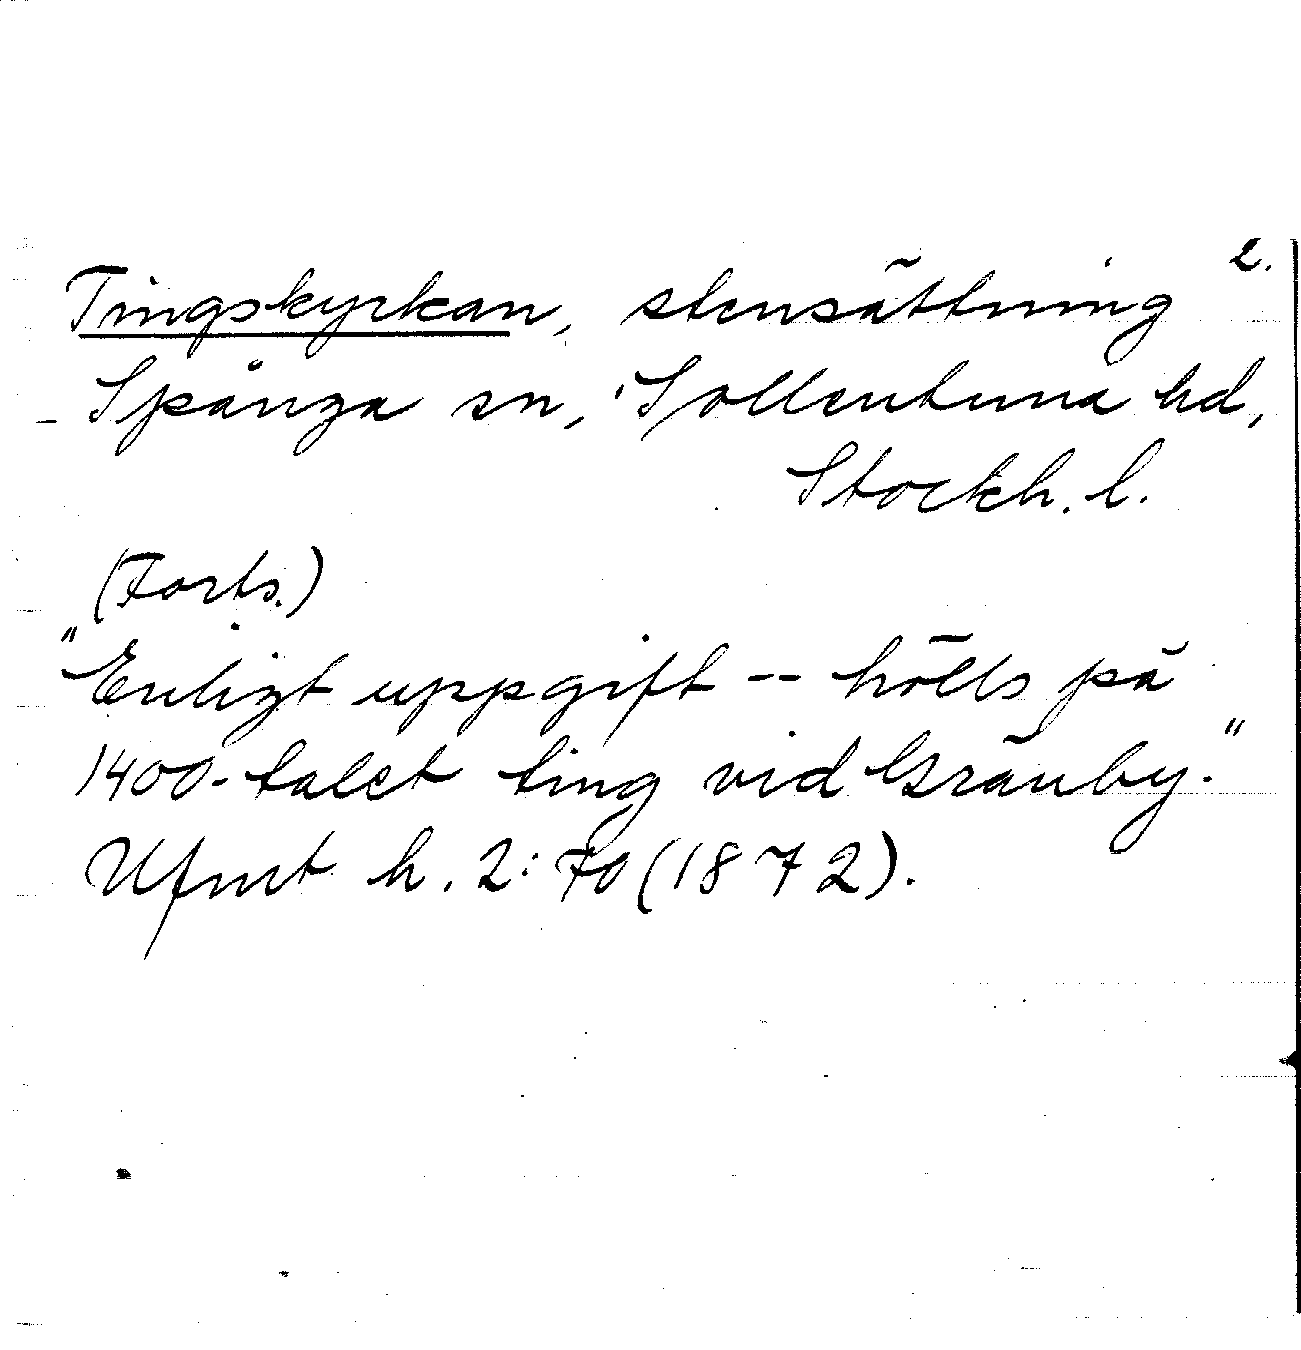 2.
Tingskyrkan, stensättning
Spånga sn, Sollentuna hd,
Stockh. l.
(Forts.)
"Enligt uppgift -- hölls på
1400-talet ting vid Granby."
Ufmt h. 2:70 (1872).